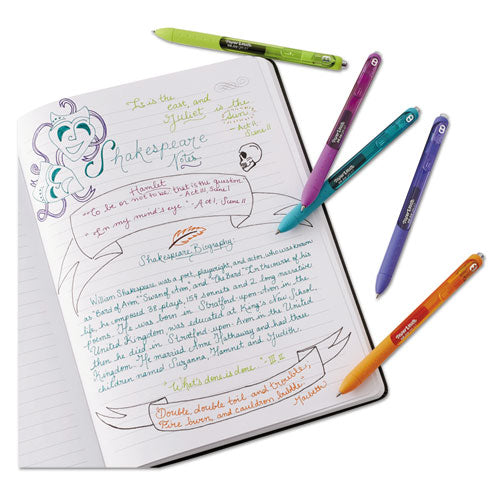 It is the
east, and
Juliet is the
sun.
- Act II,
Scene II
Shakespeare
Notes
Hamlet
"To be or not to be, that is the question."
Act III, Scene I
"In my mind's eye." - Act I, Scene II
Shakespeare Biography:
William Shakespeare was a poet, playwright, and actor, who was known
as "Bard of Avon," "Swan of Avon," and "The Bard." In the course of his
life, he composed 38 plays, 154 sonnets and 2 long narrative
poems. He was born in Stratford upon Avon in the
United Kingdom, was educated at King's New School,
then he died in Stratford upon Avon in the United
Kingdom. He married Anne Hathaway and had three
children named Suzanna, Hamnet and Judith.
"What's done is done." - III.II
"Double, double toil and trouble;
Fire burn, and cauldron bubble."
Macbeth
Paper Mate
Paper Mate
Paper Mate
Paper Mate
Paper Mate